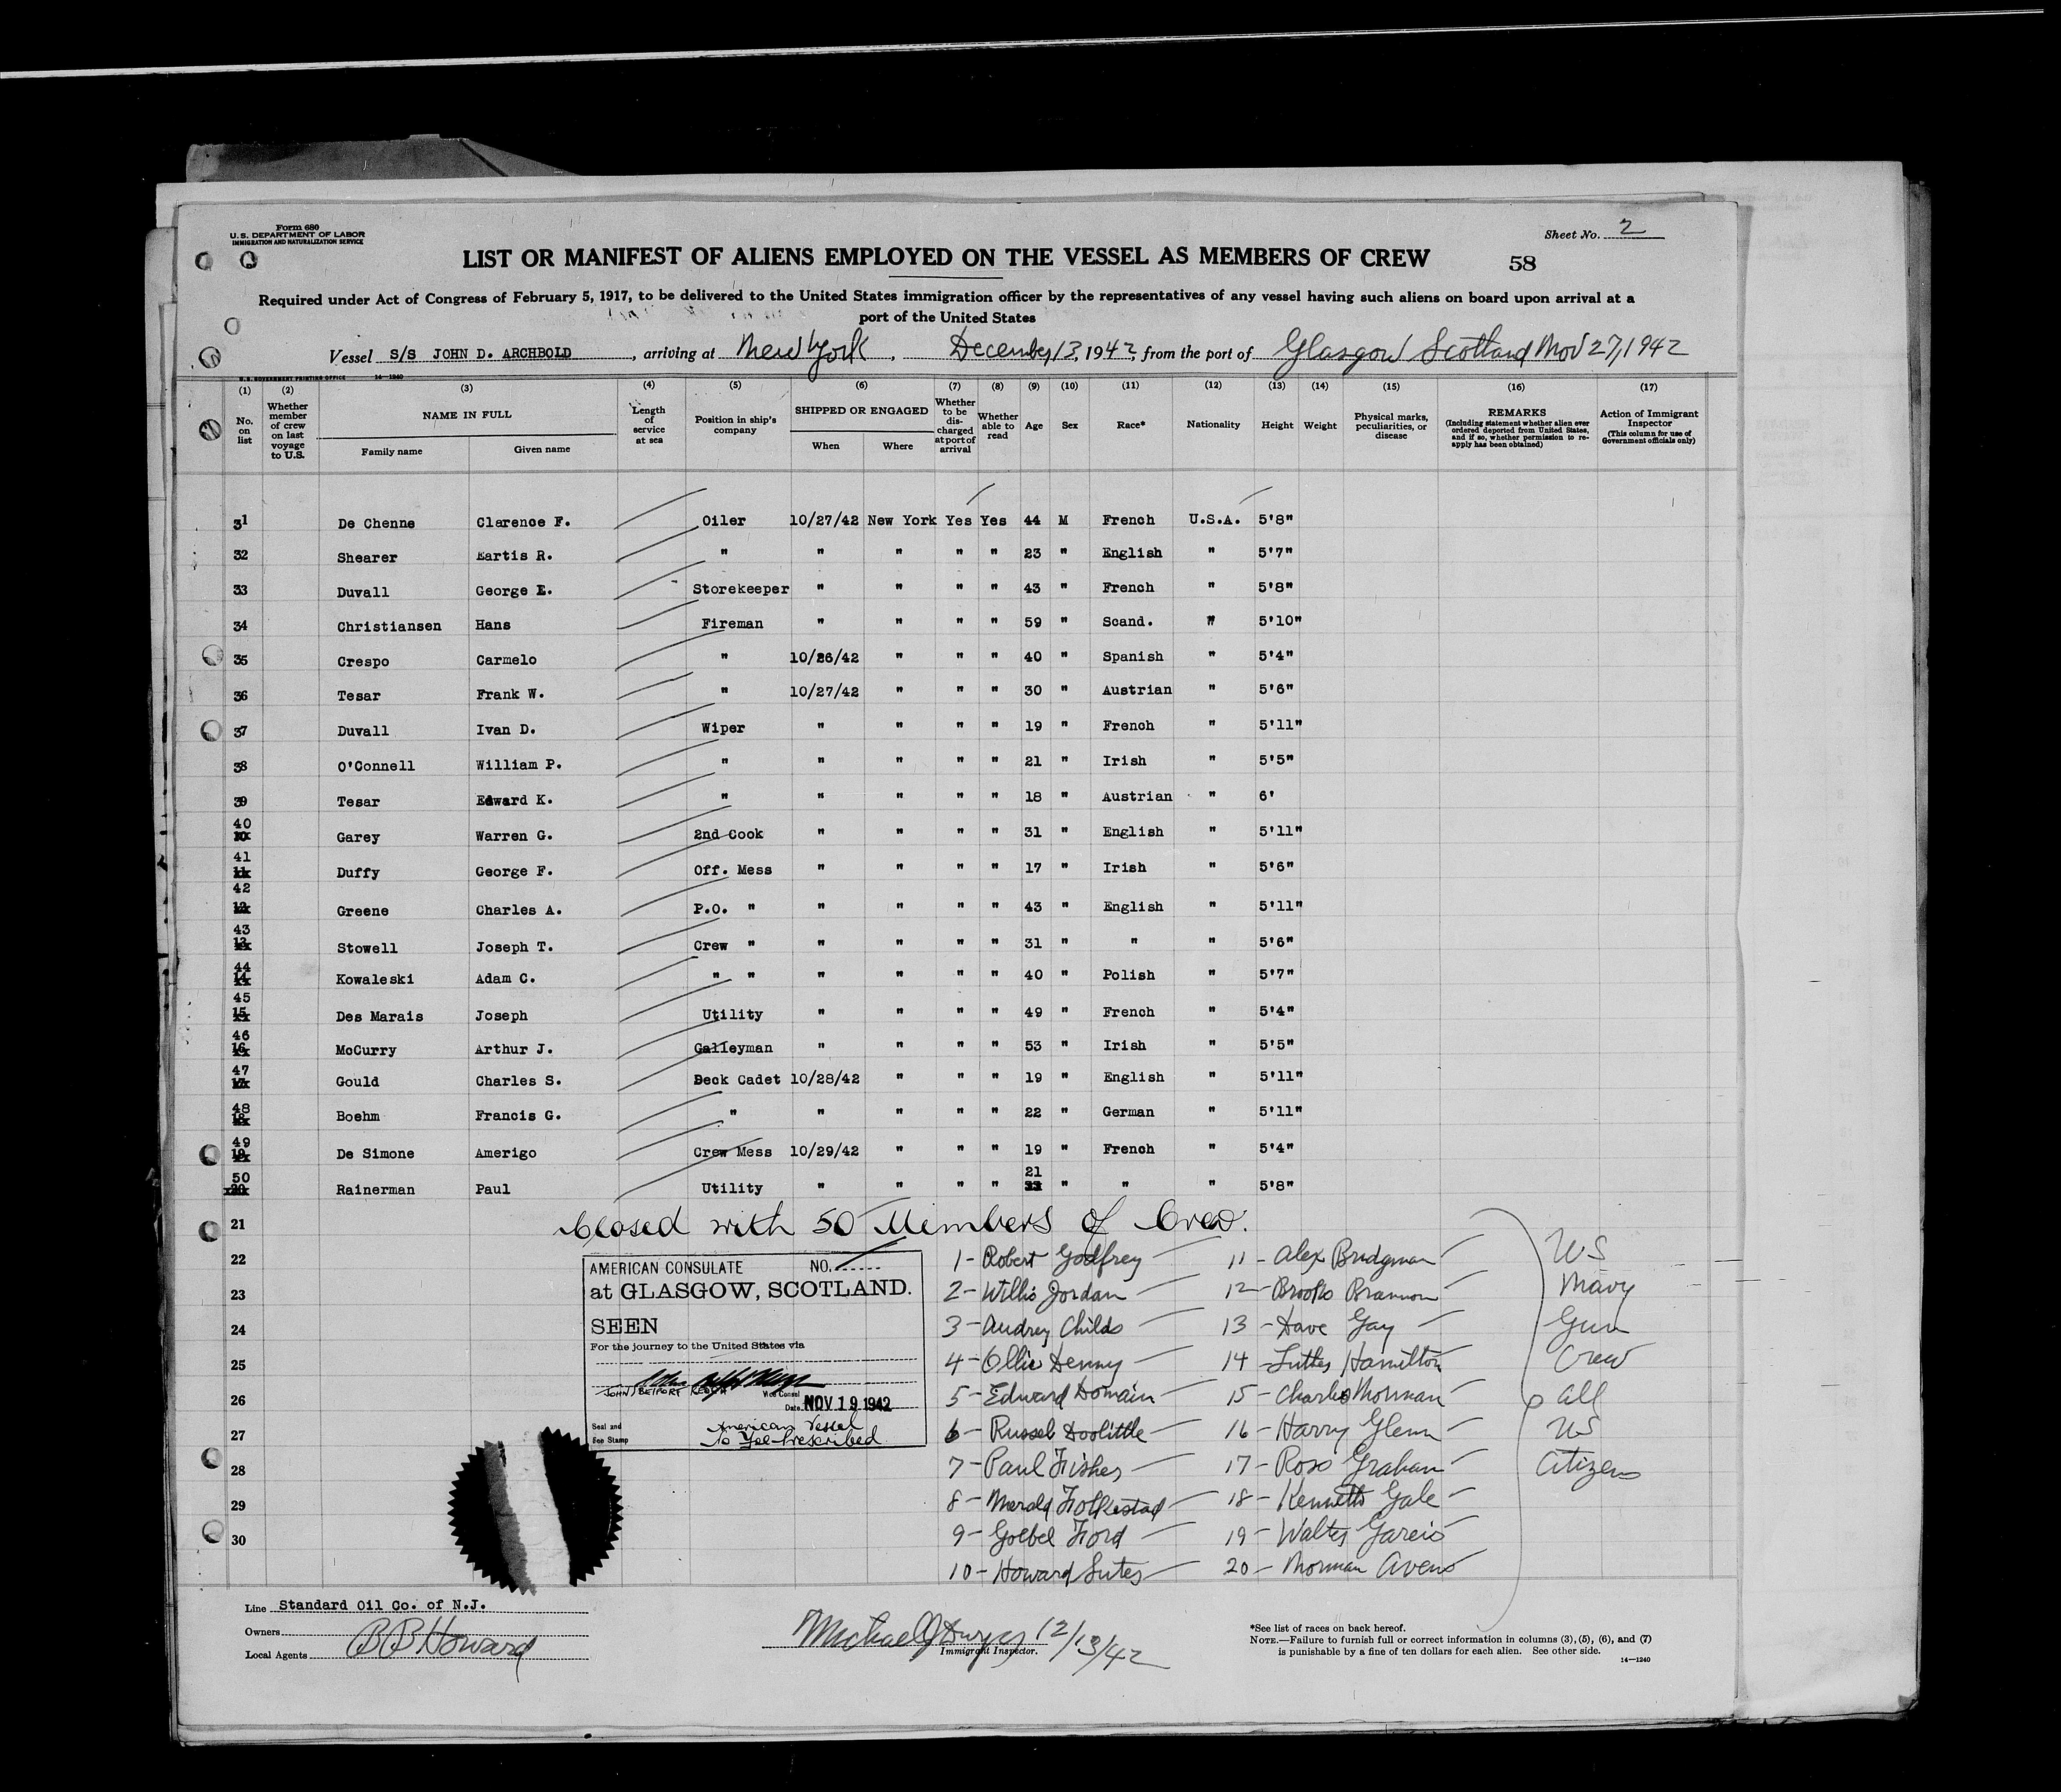 Form 680
U. S. DEPARTMENT OF LABOR
IMMIGRATION AND NATURALIZATION SERVICE
Sheet No. 2
LIST OR MANIFEST OF ALIENS EMPLOYED ON THE VESSEL AS MEMBERS OF CREW
58
Required under Act of Congress of February 5, 1917, to be delivered to the United States immigration officer by the representatives of any vessel having such aliens on board upon arrival at a
port of the United States
Vessel S/S JOHN D. ARCHBOLD , arriving at New York , December 13, 1942, from the port of Glasgow Scotland Nov 27, 1942
U. S. GOVERNMENT PRINTING OFFICE 14—1240
(1) (2) (3) (4) (5) (6) (7) (8) (9) (10) (11) (12) (13) (14) (15) (16) (17)
No. on list Whether member of crew on last voyage to U.S. NAME IN FULL Family name Given name Length of service at sea Position in ship's company SHIPPED OR ENGAGED When Where Whether to be discharged at port of arrival Whether able to read Age Sex Race* Nationality Height Weight Physical marks, peculiarities, or disease REMARKS (Including statement whether alien ever ordered deported from United States, and if so, whether permission to reapply has been obtained) Action of Immigrant Inspector (This column for use of Government officials only)
31 De Chenne Clarence F. Oiler 10/27/42 New York Yes Yes 44 M French U.S.A. 5'8"
32 Shearer Eartis R. " " " " " 23 " English " 5'7"
33 Duvall George E. Storekeeper " " " " 43 " French " 5'8"
34 Christiansen Hans Fireman " " " " 59 " Scand. " 5'10"
35 Crespo Carmelo " 10/26/42 " " " 40 " Spanish " 5'4"
36 Tesar Frank W. " 10/27/42 " " " 30 " Austrian " 5'6"
37 Duvall Ivan D. Wiper " " " " 19 " French " 5'11"
38 O'Connell William P. " " " " " 21 " Irish " 5'5"
39 Tesar Edward K. " " " " " 18 " Austrian " 6'
40 Garey Warren G. 2nd Cook " " " " 31 " English " 5'11"
41 Duffy George F. Off. Mess " " " " 17 " Irish " 5'6"
42 Greene Charles A. P.O. " " " " " 43 " English " 5'11"
43 Stowell Joseph T. Crew " " " " " 31 " " " 5'6"
44 Kowaleski Adam C. " " " " " " 40 " Polish " 5'7"
45 Des Marais Joseph Utility " " " " 49 " French " 5'4"
46 McCurry Arthur J. Galleyman " " " " 53 " Irish " 5'5"
47 Gould Charles S. Deck Cadet 10/28/42 " " " 19 " English " 5'11"
48 Boehm Francis G. " " " " " 22 " German " 5'11"
49 De Simone Amerigo Crew Mess 10/29/42 " " " 19 " French " 5'4"
50 Rainerman Paul Utility " " " " 21 " " " 5'8"
21 Closed with 50 Members of Crew.
22 1- Robert Godfrey 11- Alex Bridgman US
23 2- Willis Jordan 12- Brooks Brannon Navy
24 3- Audrey Childs 13- Dave Gay Gun
25 4- Ollie Denny 14- Luther Hamilton Crew
26 5- Edward Domain 15- Charles Norman all
27 6- Russel Doolittle 16- Harry Glenn US
28 7- Paul Fisher 17- Ross Graham Citizens
29 8- Merald Folkestad 18- Kenneth Gale
30 9- Goebel Ford 19- Walter Gareis
10- Howard Sutes 20- Norman Avens
AMERICAN CONSULATE NO.
at GLASGOW, SCOTLAND.
SEEN
For the journey to the United States via
JOHN BELFORT KEOGH Vice Consul
Date NOV 19 1942
Seal and
Fee Stamp
American Vessel
No Fee Prescribed
Line Standard Oil Co. of N.J.
Owners
Local Agents B B Howard
Michael J Dwyer 12/13/42
Immigrant Inspector.
*See list of races on back hereof.
NOTE.—Failure to furnish full or correct information in columns (3), (5), (6), and (7)
is punishable by a fine of ten dollars for each alien. See other side.
14—1240